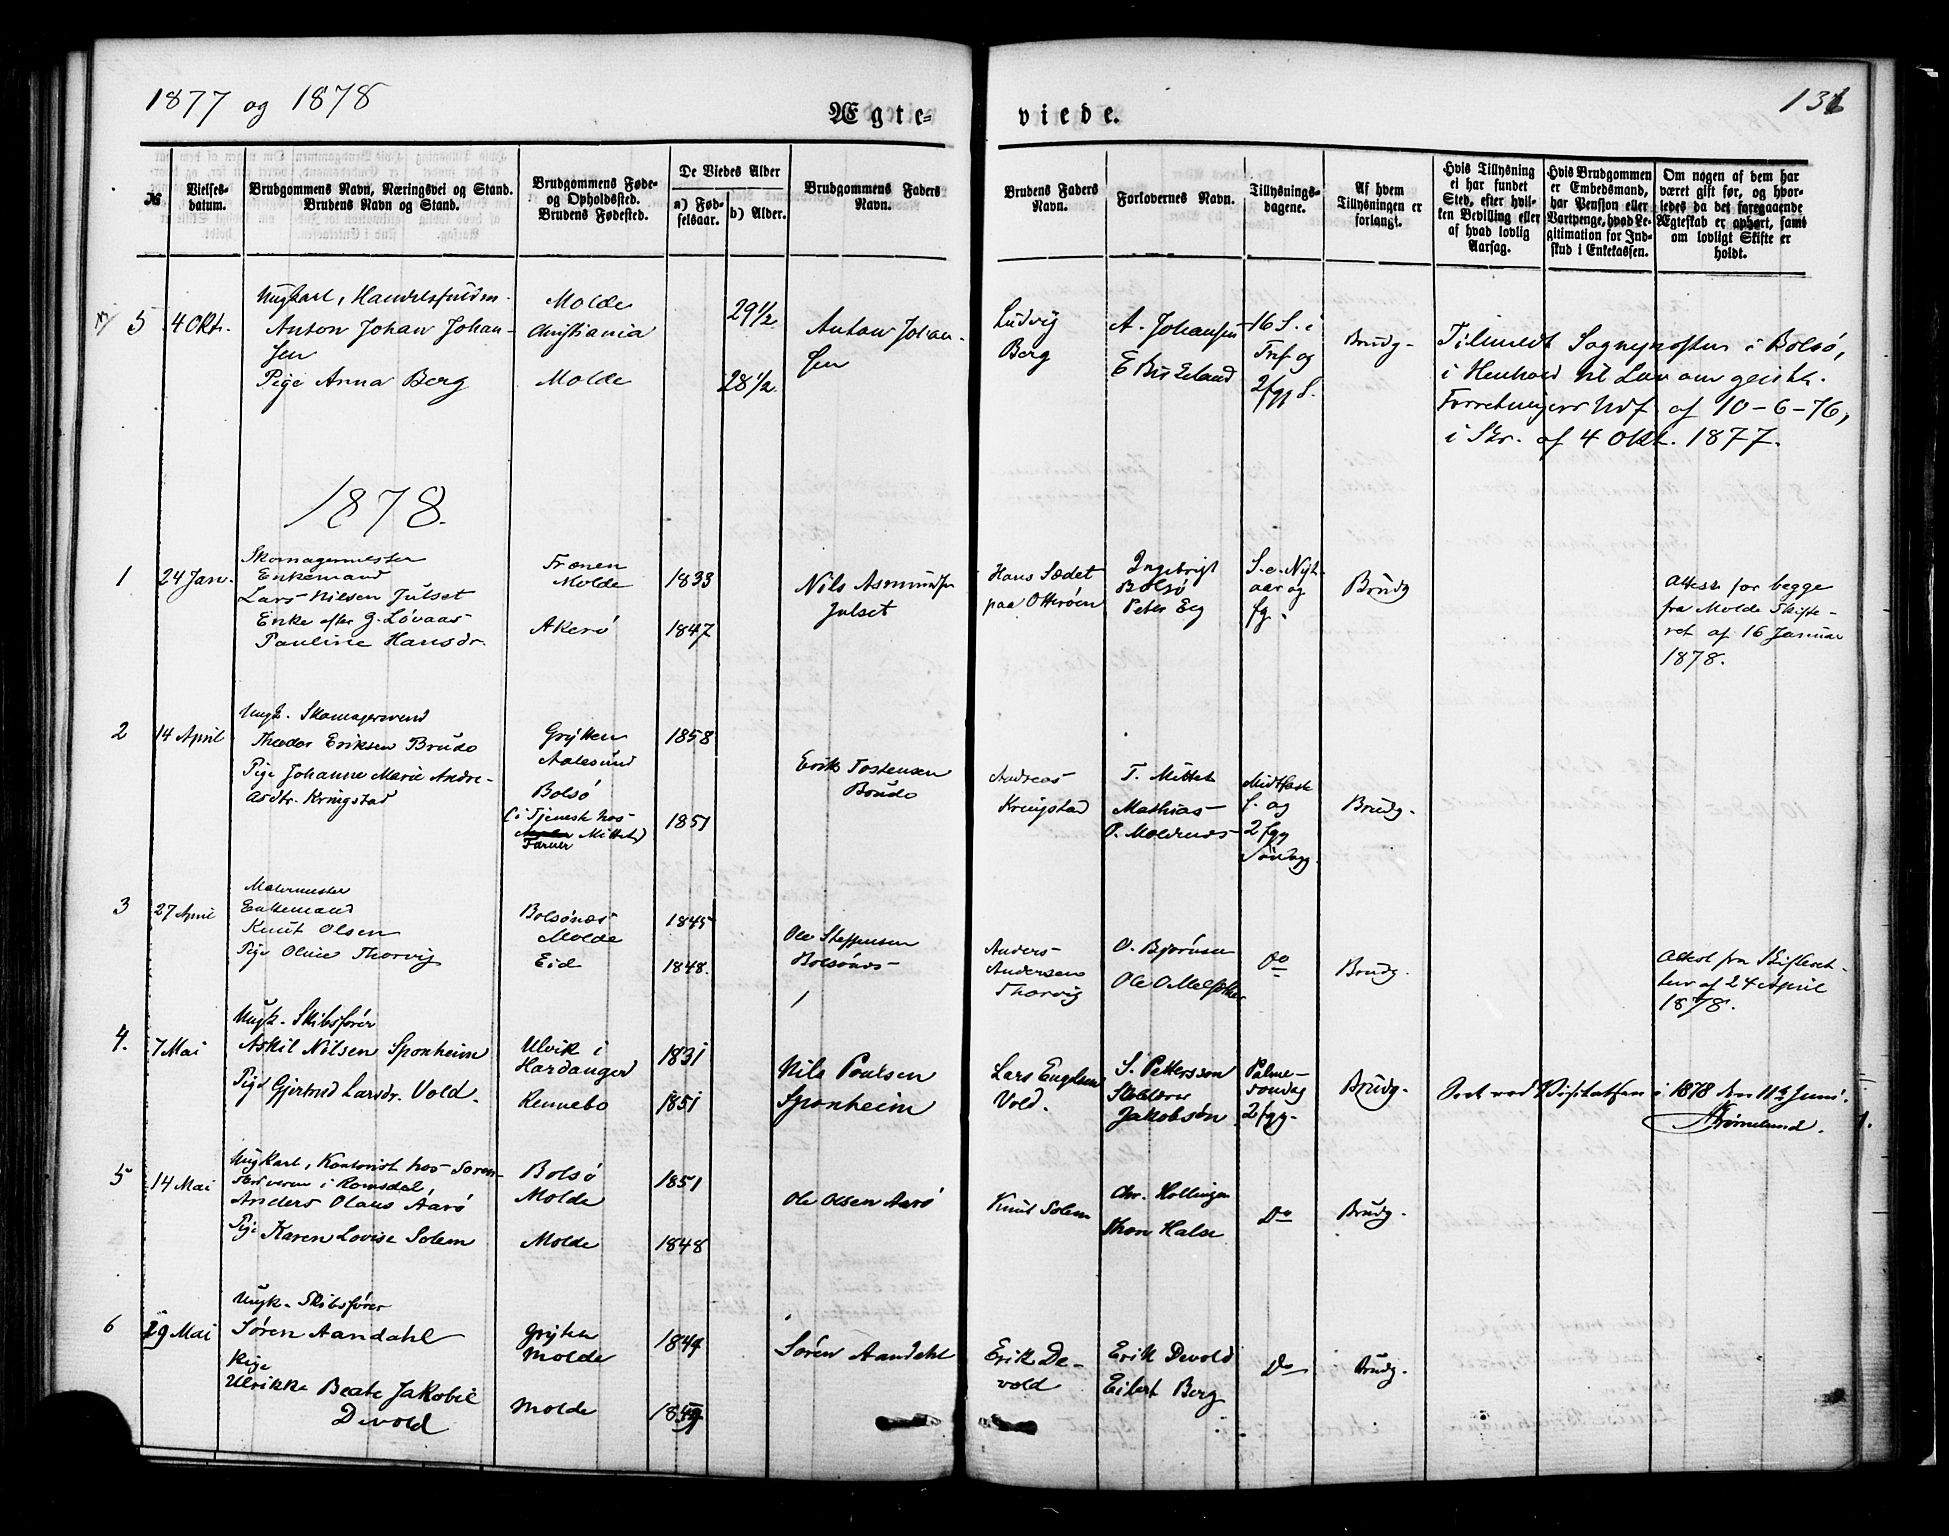 1877 og 1878
Ægte-
viede.
131
№
Vielses-
datum.
Brudgommens Navn, Næringsvei og Stand.
Brudens Navn og Stand.
Brudgommens Føde-
og Opholdssted.
Brudens Fødested.
De Viedes Alder
a) Fød-
selsaar.
b) Alder.
Brudgommens Faders
Navn.
Brudens Faders
Navn.
Forlovernes Navn.
Tillysnings-
dagene.
Af hvem
Tillysningen er
forlangt.
Hvis Tillysning
ei har fundet
Sted, efter hvil-
ken Bevilling eller
af hvad lovlig
Aarsag.
Hvis Brudgommen
er Embedsmand,
har Pension eller
Vartpenge, hvad Le-
gitimation for Ind-
skud i Enkekassen.
Om nogen af dem har
været gift før, og hvor-
ledes da det foregaaende
Ægteskab er ophørt, samt
om lovligt Skifte er
holdt.
5
4 Okt.
Ungkarl, Handelsfuldm.
Anton Johan Johan-
sen
Pige Anna Berg
Molde
Christiania
Molde
29 1/2
28 1/2
Anton Johan-
sen
Ludvig
Berg
A. Johansen
16 S. i
Tref og
2 fgg S.
Brudg.
Tilmeldt Sognepresten i Bolsø,
i Henhold til Lov om geistl.
Forretningers Udf. af 10-6-76,
i Skr. af 4 Okt. 1877.
1878.
1
24 Jan.
Skomagermester
Enkemand
Lars Nilsen Julset
Enke efter G. Løvaas
Pauline Hansdr.
Frænen
Molde
Akerø
1833
1847
Nils Asmundsen
Julset
Hans Sædet
paa Otterøen
Ingebrigt
Bolsø
Peter Eeg
S. e. Nyt-
aar og
fg.
Brudg
Attest for begge
fra Molde Skifte-
ret af 16 Januar
1878.
2
14 April
Ungk. Skomagersvend
Theodor Eriksen Brudo
Pige Johanne Marie Andre-
asdtr. Kringstad
Grytten
Aalesund
Bolsø
(i Tjeneste hos
Farver Mittet)
1858
1851
Erik Tostensen
Brudo
Andreas
Kringstad
T. Mittet
Mathias
O. Moldenæs
Midtfaste
S. og
2 fgg
Søndagg.
Brudg.
3
27 April
Malermester
Enkemand
Knut Olsen
Pige Oline Thorvig
Bolsønæs
Molde
Eid
1845
1848.
Ole Steffensen
Bolsønæs
Anders
Andersen
Thorvig
O. Bjørnsen
Do
Brudg.
Attest fra Skifteret-
ten af 24 April
1878.
4.
7 Mai
Ungk. Skibsfører
Askil Nilsen Sponheim
Pige Gjertrud Larsdr. Vold.
Ulvik i
Hardanger
Rennebo
1831
1851
Nils Poulsen
Sponheim
Lars Engelsen
Vold.
S. Pettersson
Jakobsøn
Palme-
søndag
2 fgg.
Brudg.
Seet ved Visitatsen i 1878 den 11te Juni.
5
14 Mai
Ungkarl, Kontorist hos Soren-
skriveren i Romsdal,
Anders Olaus Aarø
Pige Karen Lovise Solem
Bolsø
Molde
Molde
1851
1848
Ole Olsen Aarø
Knut Solem
Chr. Hollingen
Thom Halse
Do
Brudg.
6
29 Mai
Ungk. Skibsfører
Søren Aandahl
Pige
Ulrikke Beate Jakobie
Devold
Grytten
Molde
Molde
1849
Søren Aandahl
Erik De-
vold
Erik Devold
Eilert Berg
Do
Brudg.